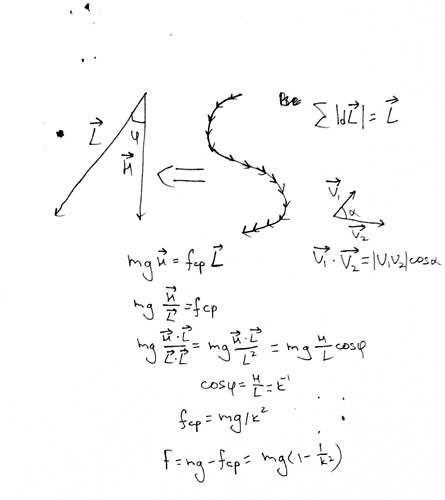 ∑|dL⃗| = L⃗
L⃗
φ
H⃗
V⃗₁
α
V⃗₂
V⃗₁ · V⃗₂ = |V₁V₂|cosα
mg H⃗ = fcp L⃗
mg H⃗/L⃗ = fcp
mg H⃗·L⃗/L⃗·L⃗ = mg H⃗·L⃗/L² = mg H/L cosφ
cosφ = H/L = k⁻¹
fcp = mg/k²
F = mg - fcp = mg(1 - 1/k²)